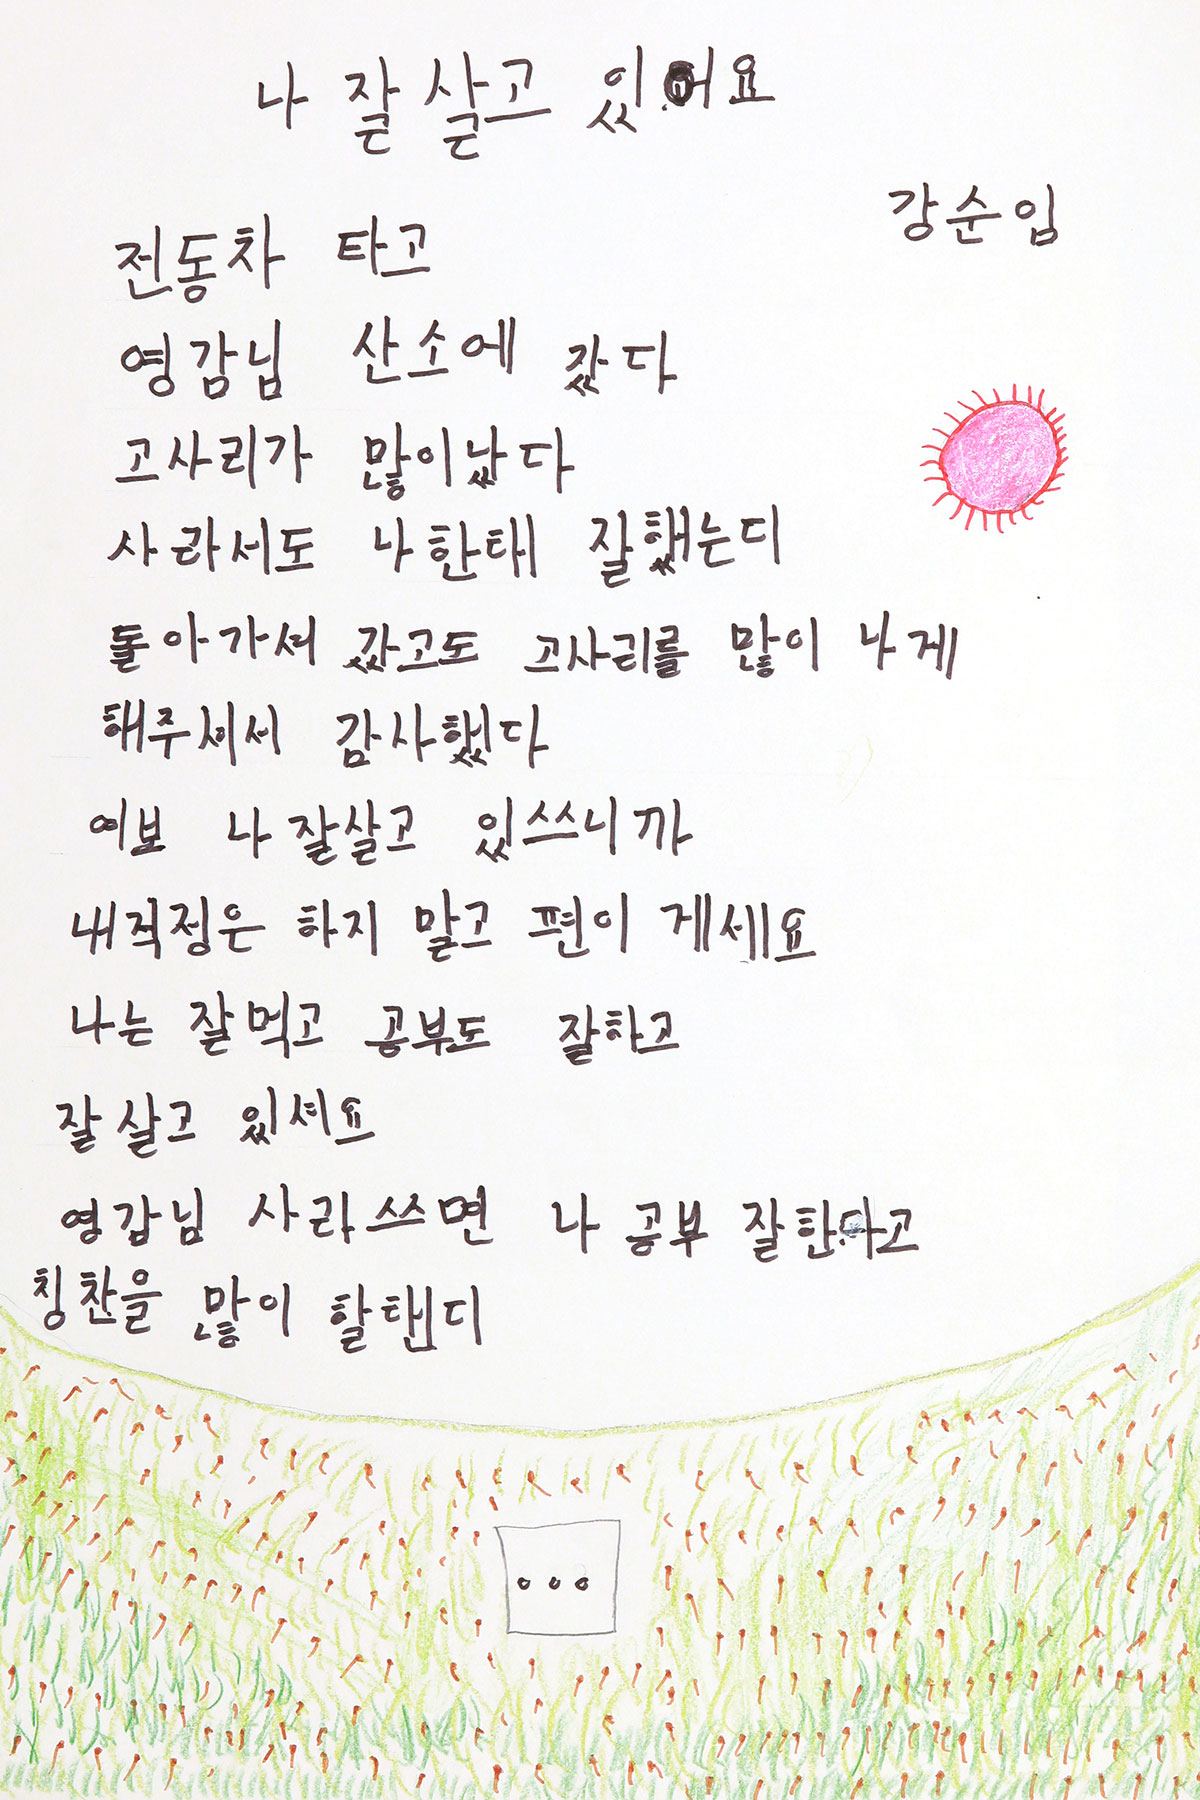 나 잘 살고 있어요
강순임
전동차 타고
영감님 산소에 갔다
고사리가 많이났다
사라서도 나한태 잘했는디
돌아가셔 갔고도 고사리를 많이 나게
해주셔서 감사했다
여보 나 잘살고 있쓰니까
내걱정은 하지 말고 편이 게세요
나는 잘먹고 공부도 잘하고
잘살고 있셔요
영감님 사라쓰면 나 공부 잘한다고
칭찬을 많이 할탠디